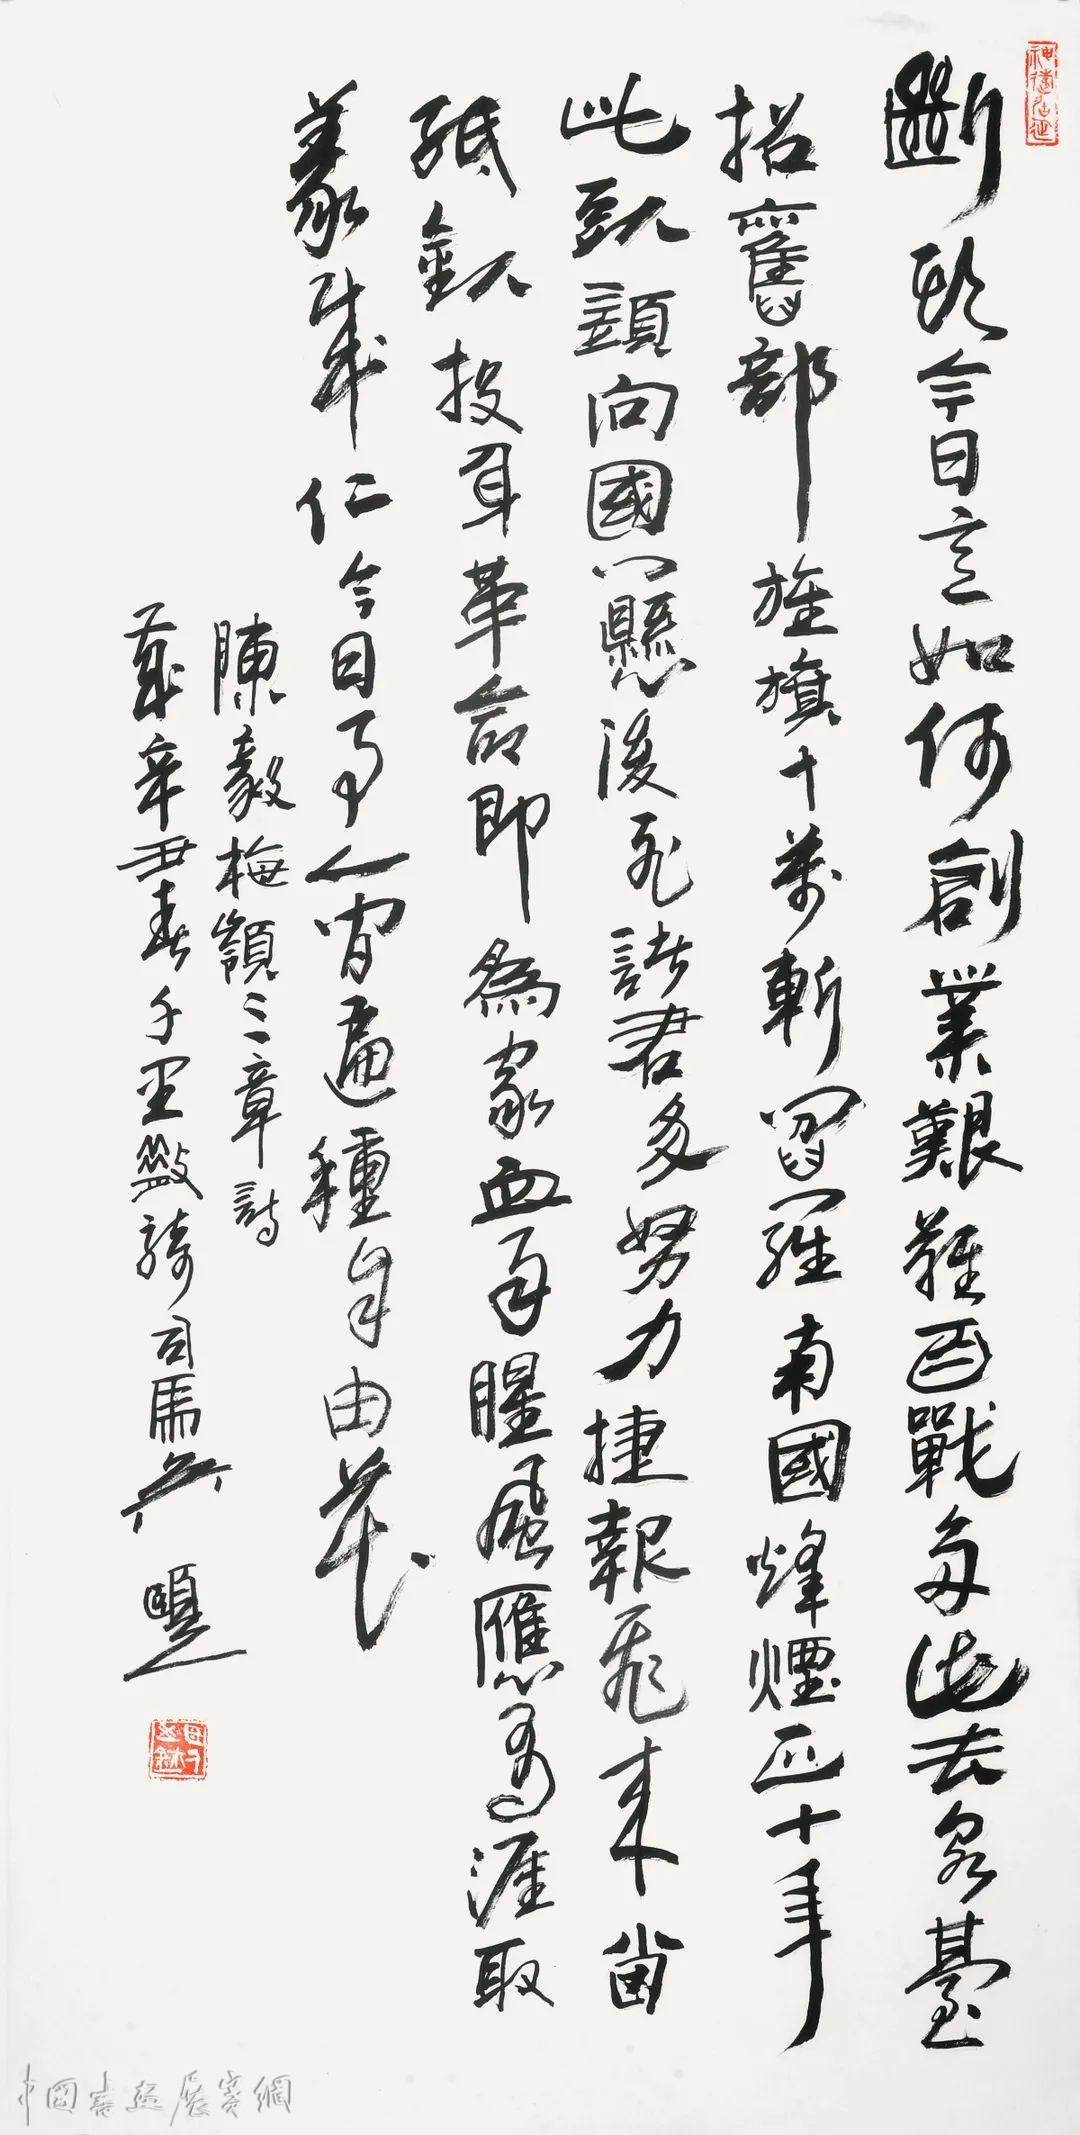 斷頭今日意如何創業艱難百戰多此去泉臺
招舊部旌旗十萬斬閻羅南國烽煙正十年
此頭須向國門懸後死諸君多努力捷報飛來當
紙錢投身革命即為家血雨腥風應有涯取
義成仁今日事人間遍種自由花
陳毅梅嶺三章詩
歲辛丑春千里騎司馬頤
中國書畫展賽網